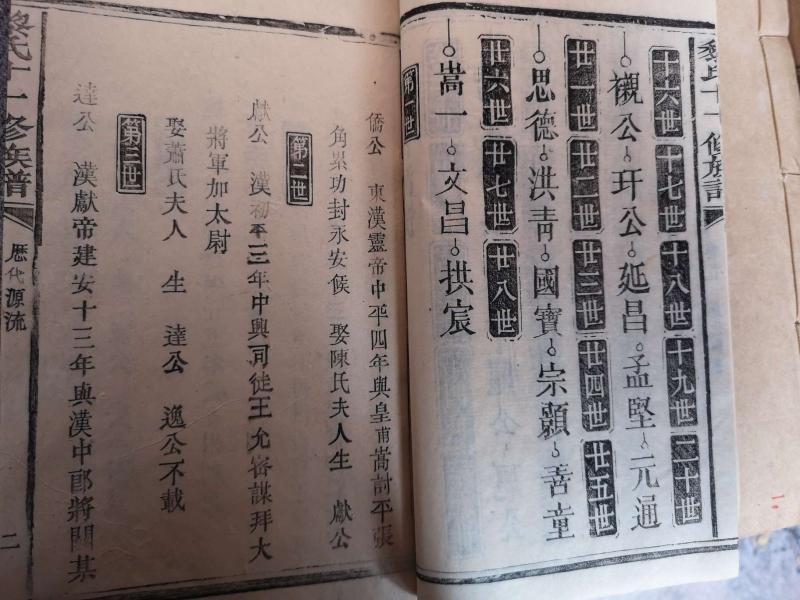 黎氏十一修族譜
十六世 十七世 十八世 十九世 二十世
襯公 玕公 延昌 孟堅 元通
廿一世 廿二世 廿三世 廿四世 廿五世
思德 洪青 國寶 宗顥 善童
廿六世 廿七世 廿八世
嵩一 文昌 拱宸
第一世
僑公 東漢靈帝中平四年與皇甫嵩討平張
角累功封永安候 娶陳氏夫人生 獻公
第二世
獻公 漢初平三年中與司徒王允審謀拜大
將軍加太尉
娶蕭氏夫人 生 達公 逸公不載
第三世
達公 漢獻帝建安十三年與漢中郎將關某
黎氏十一修族譜
歷代源流
二